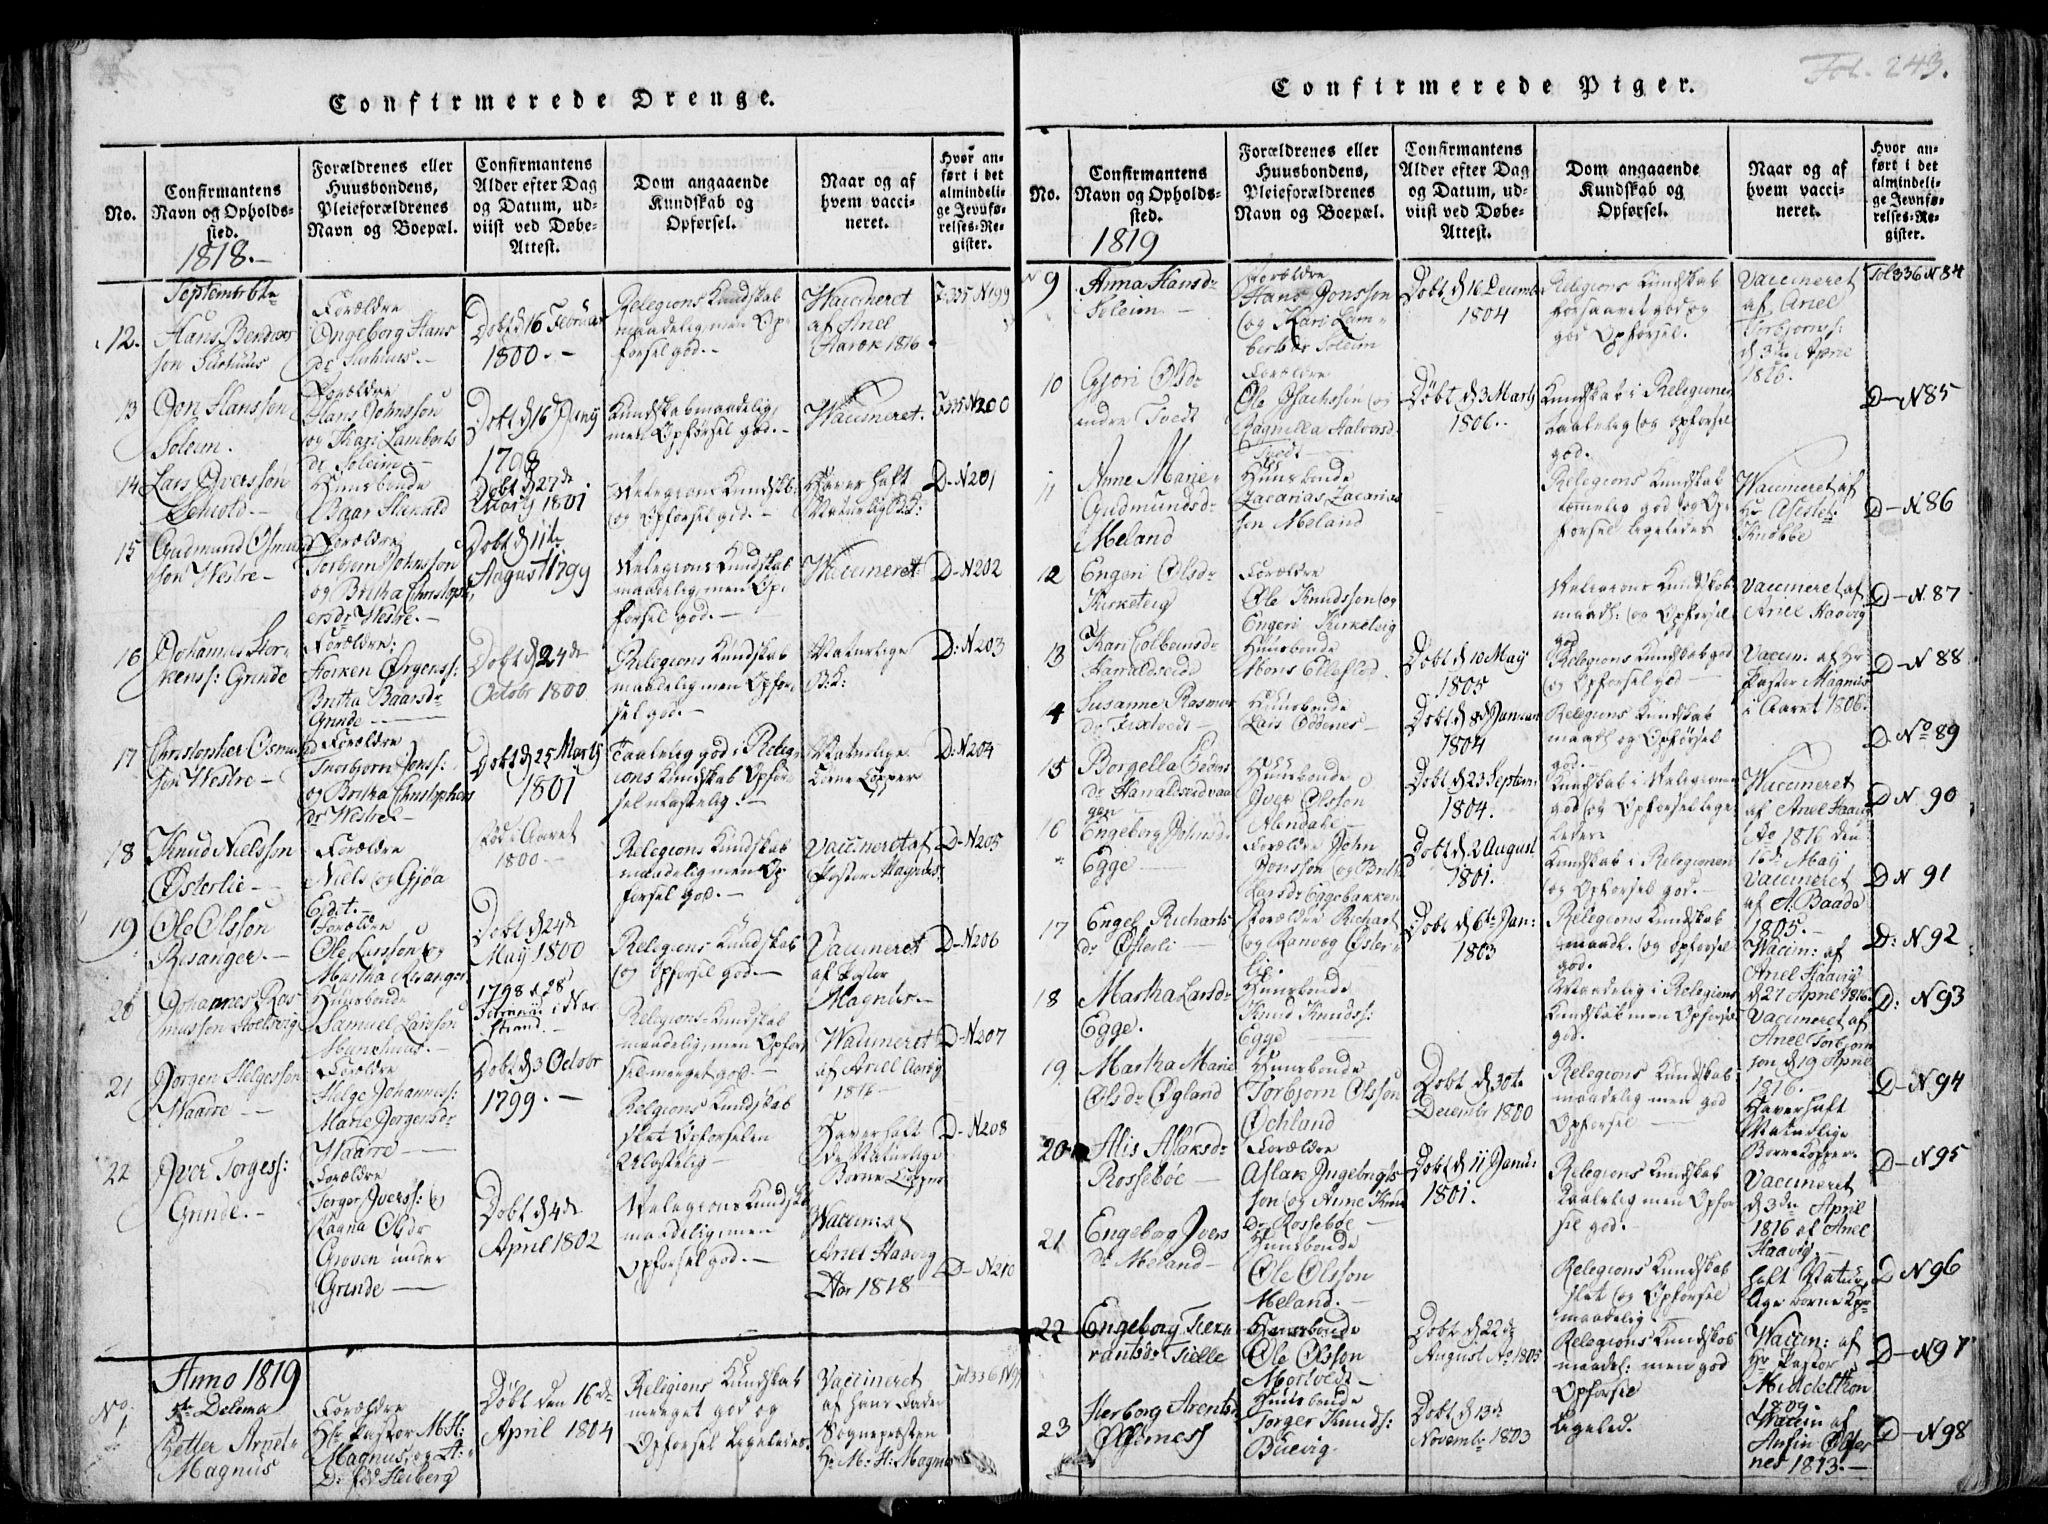 Confirmerede Drenge.
No.
Confirmantens
Navn og Opholds-
sted.
1818.-
Forældrenes eller
Huusbondens,
Pleieforældrenes
Navn og Boepæl.
Confirmantens
Alder efter Dag
og Datum, ud-
viist ved Døbe-
Attest.
Dom angaaende
Kundskab og
Opførsel.
Naar og af
hvem vacci-
neret.
Hvor an-
ført i det
almindeli-
ge Jevnfø-
relses-Re-
gister.
12.
Forældre
Døbt d 16 Februar
1800.-
Religions Kundskab
maadelig, men Op-
førsel god.-
Vaccineret
af Anel
1816
13
Hansson
Soleim.
Forældre
Hans Johnsson
og Kari Lamberts
dr Soleim.-
Kundskab maadelig,
men Opførsel god.-
Vaccineret.
N200
14
Lars
Huusbonde
Døbt d 27de
1801
Religions Kundskab
og Opførsel god.-
D-N201
15
Gudmund
son Westre-
Forældre
Torbjørn Johnsson
og Britha Christoph
ersdr Westre.-
Døbt d 11te
August 1799
Religions Kundskab
maadelig, men Op-
førsel god.-
Vaccineret-
D-N202
16
Johannes
Grinde
Forældre:
Britha Baarsdr
Grinde
Døbt d 24de
Octobr 1800
Religions Kundskab
maadelig men Opfør-
sel god.-
Naturlige
B:K:
D:N203
17
Christopher
son Westre-
Forældre
Thorbjørn Jons:
og Britha Christophers
dr Westre-
Døbt d 25 Marty
1801
Naturlige
D:N204
18
Knud Nielsson
Østerlie-
Forældre
Niels og Gjøa
Aaret
1800.-
Religions Kundskab
maadelig men Op-
førsel god.-
Vaccineret af
Pastor Magnus.
D-N205
19
Ole Olsson
Risanger.-
Forældre
Ole Larsson og
Martha Risanger
Døbt d 24de
May 1800
Religions Kundskab
og Opførsel god.-
Vaccineret
af Pastor
Magnus.-
D-N206
20
Johannes Ras
musson
Huusbonde
Samuel Larsson
1798 d 28
Strand.-
Religions-Kundskab
maadelig, men Opfør-
sel meget god.-
Vaccineret
af Anel
1816
D-N207
21
Jørgen Helgesson
Waarre-
Forældre
Helge Johanness:
Marie Jørgensdr
Waarre-
Døbt d 3 Octobr
1799.-
Religions Kundskab
slet Opførselen
Haver haft
de Naturlige
Børne Copper
D-N208
22
Iver Torgers:
Grinde.-
Forældre
Torger Ivers: og
Ragna Olsdr
Groven under
Grinde
Døbt d 4de
April 1802
Religions Kundskab
maadelig, men
Opførsel god.-
Vaccin: af
Anel Haavig
1818
D-N210
No.
1
Anno 1819
Petter Arnet
Magnus
Forældre
Hr Pastor M:H:
Magnus, og A:
D: fød Heiberg
Døbt den 16de
April 1804
Religions Kundskab
meget god og
Opførsel ligeledes.
Vaccineret
af hans Fader
Sognepræsten
Hr M:H: Magnus
Fol. 243.
Confirmerede Piger.
No.
Confirmantens
Navn og Opholds-
sted.
1819
Forældrenes eller
Huusbondens,
Pleieforældrenes
Navn og Boepæl.
Confirmantens
Alder efter Dag
og Datum, ud-
viist ved Døbe-
Attest.
Dom angaaende
Kundskab og
Opførsel.
Naar og af
hvem vacci-
neret.
Hvor an-
ført i det
almindeli-
ge Jevnfø-
relses-Re-
gister.
9
Anna Hansdr
Soleim
Forældre
Hans Jonsson
og Kari Lam-
bertsdr Soleim
Døbt d 16 Decembr
1804
Religions Kundskab
god og
god Opførsel.
Vaccineret
af Anel
Torbjørns:
d 3die April
1816.
Fol 336 N 84
10
Gjøri Olsdr
indre Tvedt
Forældre
Ole Isachssøn og
Ragnilla Halvorsdr
Tvedt
Døbt d 3 Marty
1806.
Kundskab i Religionen
taalelig og Opførsel
god.
D-N85
11
Anne Marie
Gudmundsdr
Meland
Huusbonde
Zacarias Zacarias
søn Meland
Religions Kundskab
temmelig god og Op-
førsel ligeledes
Vaccineret af
Hr
Knobbe
D-N86
12
Engeri Olsdr
Kirketeig
Forældre
Ole Knudsson og
Engeri Kirketeig
Religions Kundskab
maadl: og Opførsel
god
Vaccineret af
Anel Haavig
D-N.87
13
Kari Colbeinsdr
Haraldseid
Huusbonde
Mons
Døbt d 10 May
1805
Religions Kundskab god
og Opførsel god
Vaccin: af Hr
Pastor Magnus
i Aaret 1806.
D-N 88
4
Susanne Rasmus
dr
Huusbonde
Lars
Døbt d 8 Januar
1804
Religions Kundskab
maadl og Opførsel
god.-
D No 89
15
Borgella
dr Haraldseidvaa
gen
Huusbonde
Iver Olsson
Alendahl-
Døbt d 23 Septem:
1804.
Kundskab i Religionen
god og Opførsel lige-
ledes
Vaccineret
af Anel Haavig
Ao 1816 den
16de May
D N 90
16
Engeborg Johnsdr
Egge
Forældre John
Jonsson og Brith
Larsdr Eggebakken
Døbt d 2 August
1801.
Kundskab i Religionen
og Opførsel god.-
Vaccineret
af A. Baade
1805.-
D N 91
17
Engel Richarts
dr Østerli-
Forældre Richart
og Ranvæg Øster
lie.
Døbt d 6te Jan:
1803
Religions Kundskab
maadl. og Opførsel
god.
Vaccin: af
Anel Haavig
d 27 April 1816.
D: N92
18
Martha Larsdr
Egge.
Huusbonde
Knud Knuds:
Egge
Maadelig i Religions
Kundskab men Opførsel
god.
Vaccineret af
Anel Torbjørn
son d 19 April
1816.
D: N93
19
Martha Marie
Olsdr Øgland
Huusbonde
Torbjørn Olsson
Ochland
Døbt d 30te
Decembr 1800
Religions Kundskab
maadelig men god
Opførsel
Haver haft
Naturlige
Børnekopper.
D-N94
20
Alis Aslaksdr
Rossebøe
Forældre
Aslak Ingebrigts
son og Anne Knu
dr Rossebøe-
Døbt d 11 Janu:
1801.
Religions Kundskab
taalelig men Opfør
sel god.-
Vaccineret
d 3die April
1816 af Anel
Haavig.-
D-N95
21
Engeborg Ivers
dr Meland-
Huusbonde
Ole Olsson
Meland.-
Religions Kundskab
slet og Opførsel
maadelig
haft Natur
lige børne Kop
D N96
22
Engeborg
Huusbonde
Ole Olsson
Døbt d 22de
August Ao 1805
Religions Kundskab
maadel: men god
Opførsel
Vaccin: af
Hr Pastor
Middelthon
1809.
D-N97
23
Herborg Arentsdr
Huusbonde
Torger Knuds:
Døbt d 13de
Novembr 1803
Ligeled.
Vaccin af
1813.-
D-N98